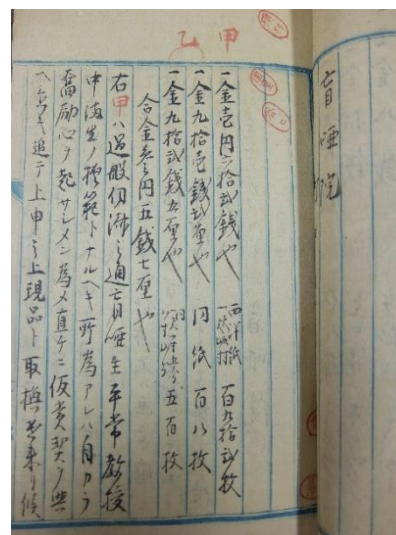 盲唖院
甲
乙
一金壱円六拾弐銭也 西洋紙 百九拾弐枚
一金九拾壱銭弐厘也 同紙 百八枚
一金九拾弐銭五厘也 五百枚
合金参円五銭七厘也
右甲ハ過般伺済之通盲唖生平常教授
中諸生ノ模範トナルヘキ所為アレハ自カラ
奮励心ヲ起サシメン為メ直ケニ仮賞状ヲ与
ヘ置キ追テ上申之上現品ト取換出来リ候